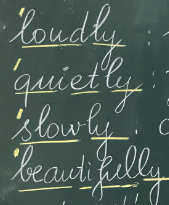 loudly :
quietly :
slowly .
beautifully